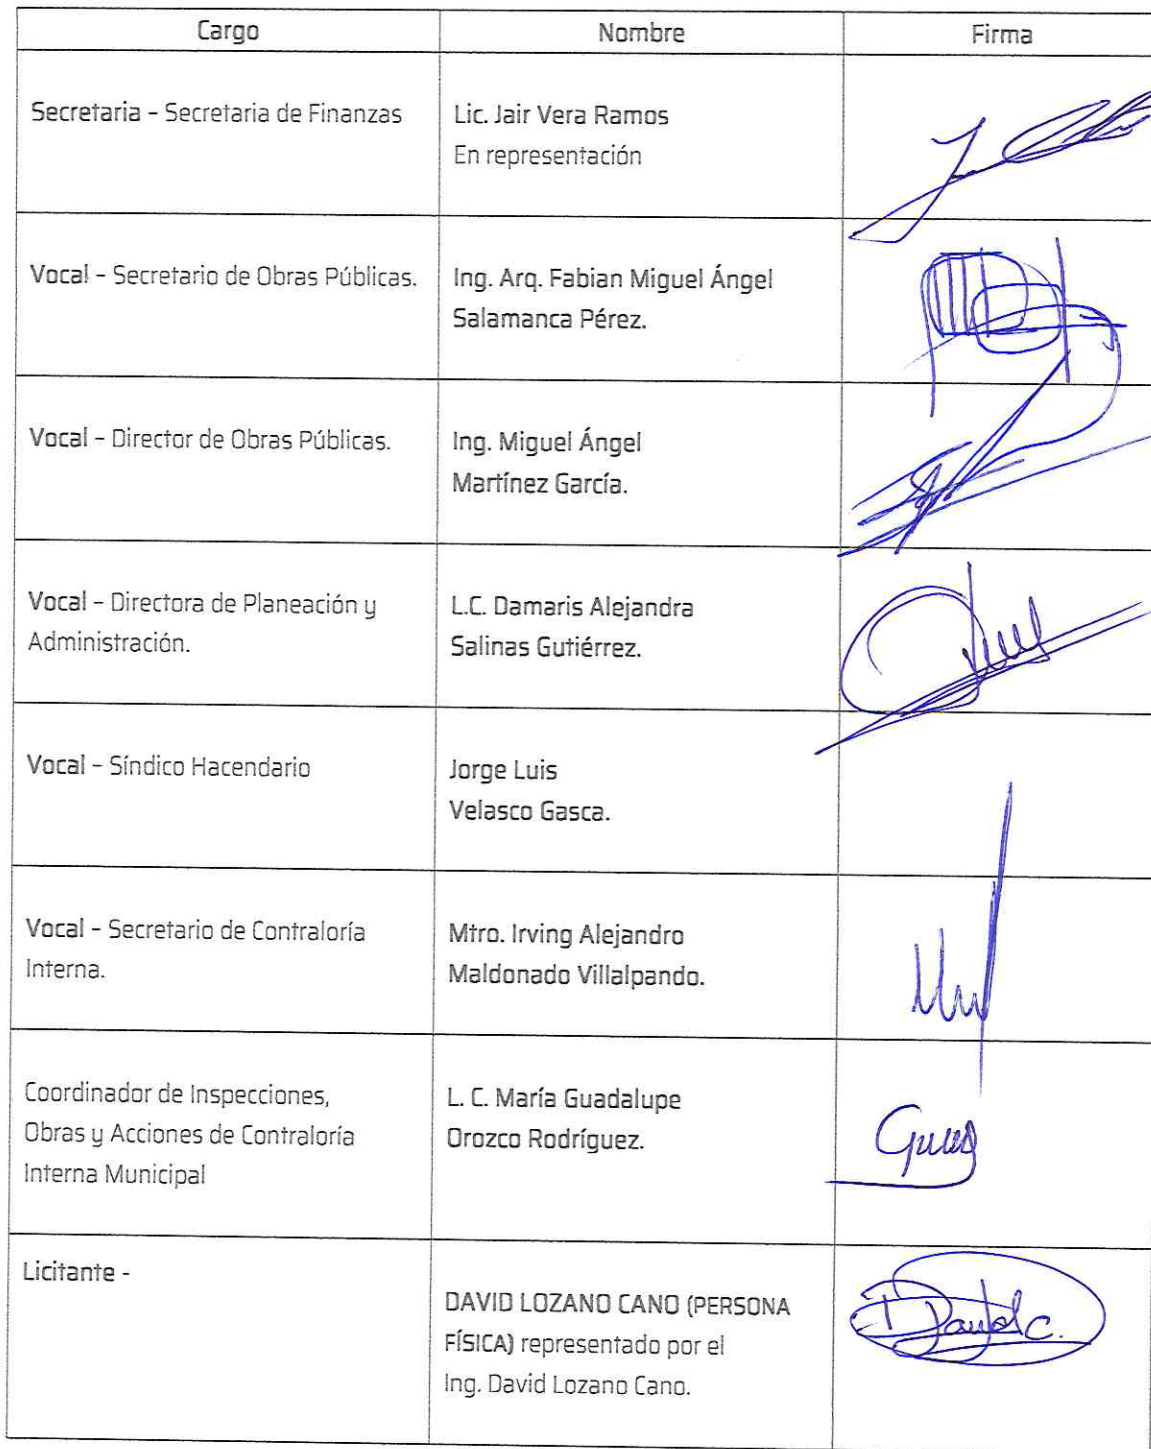 Cargo
Nombre
Firma
Secretaria - Secretaria de Finanzas
Lic. Jair Vera Ramos
En representación
Vocal - Secretario de Obras Públicas.
Ing. Arq. Fabian Miguel Ángel
Salamanca Pérez.
Vocal - Director de Obras Públicas.
Ing. Miguel Ángel
Martínez García.
Vocal - Directora de Planeación y
Administración.
L.C. Damaris Alejandra
Salinas Gutiérrez.
Vocal - Síndico Hacendario
Jorge Luis
Velasco Gasca.
Vocal - Secretario de Contraloría
Interna.
Mtro. Irving Alejandro
Maldonado Villalpando.
Coordinador de Inspecciones,
Obras y Acciones de Contraloría
Interna Municipal
L. C. María Guadalupe
Orozco Rodríguez.
Licitante -
DAVID LOZANO CANO (PERSONA
FÍSICA) representado por el
Ing. David Lozano Cano.